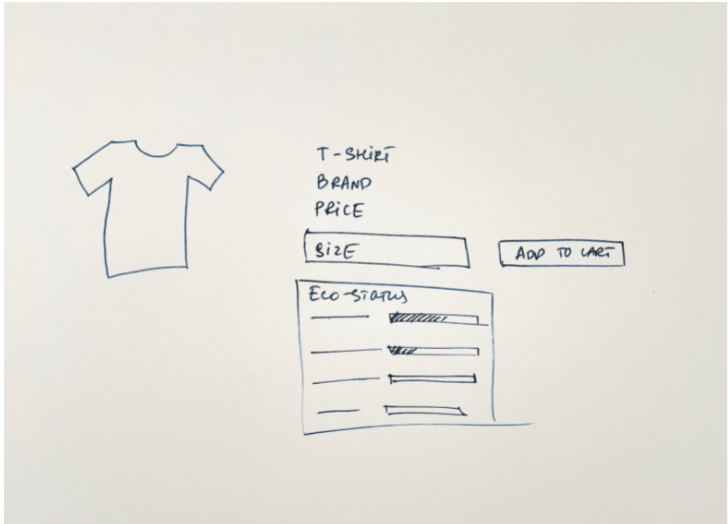 T-SHIRT
BRAND
PRICE
SIZE
ADD TO CART
ECO-STATUS